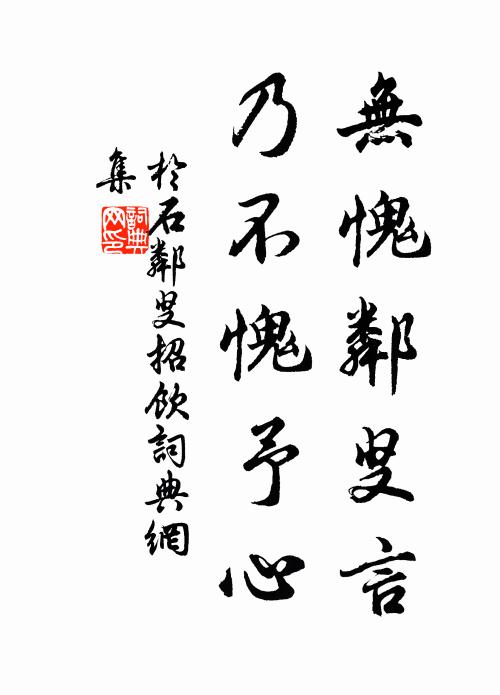 無愧鄰叟言
乃不愧予心
於石鄰叟招飲詞典網
集
詞典
网印